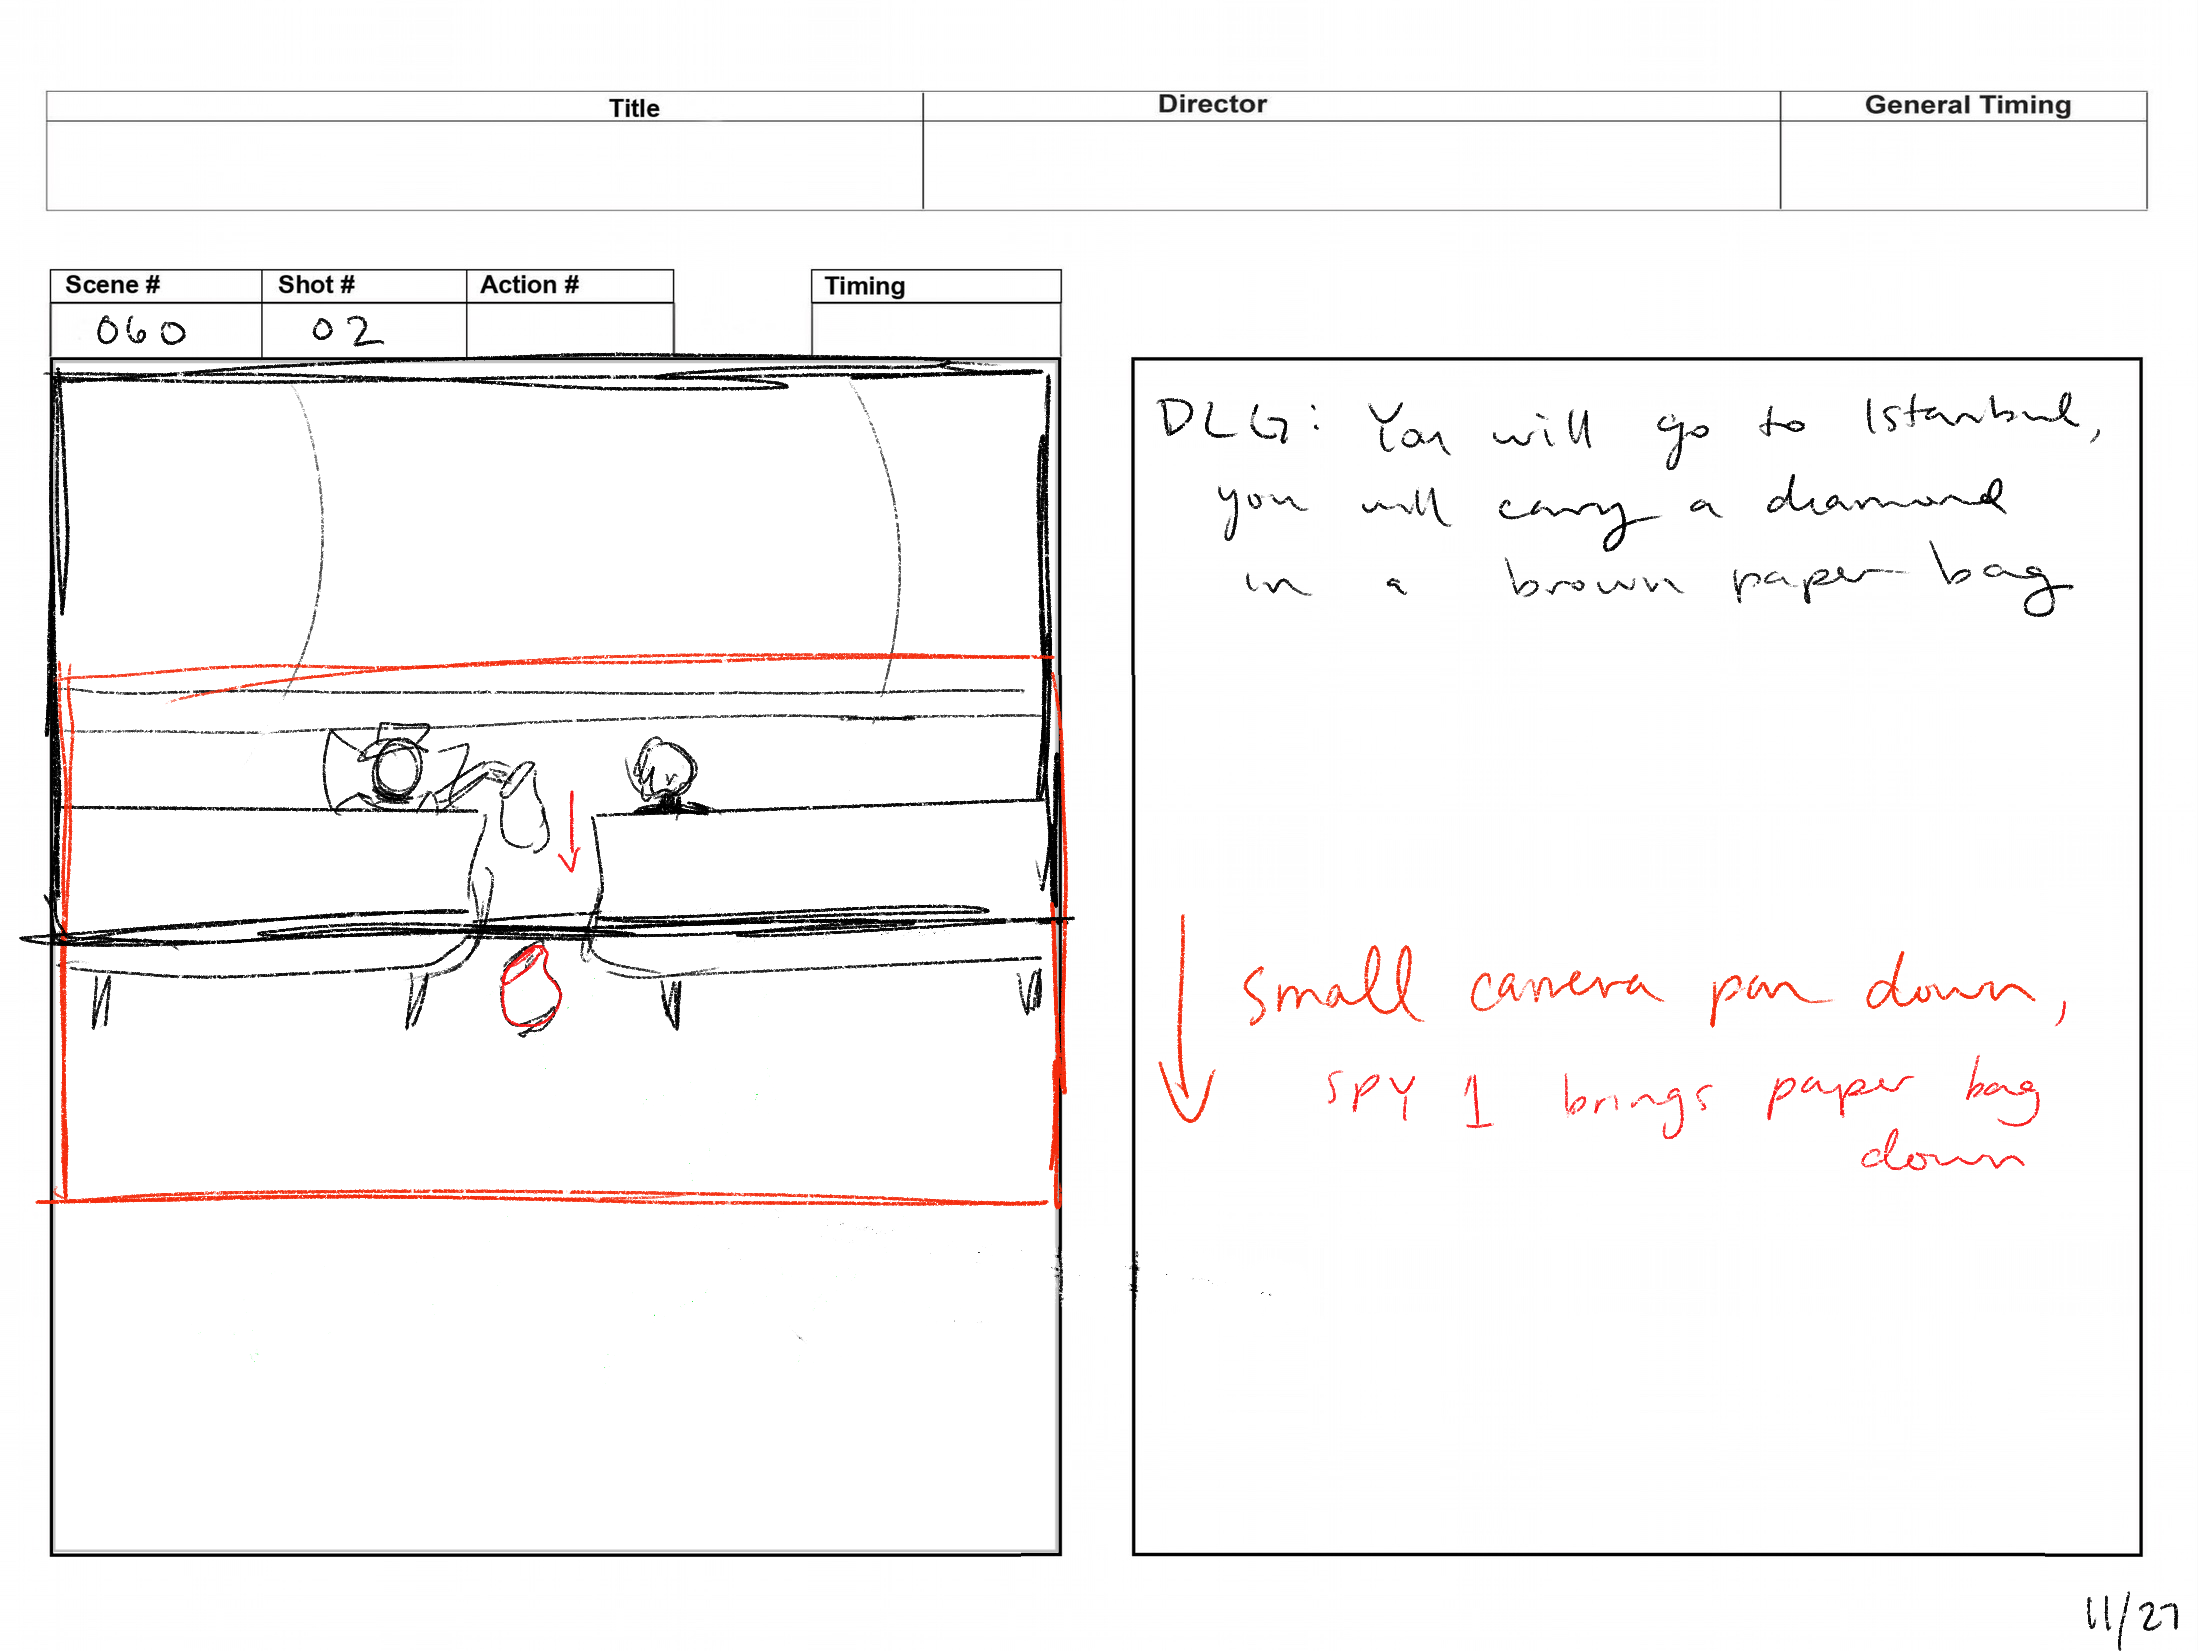 Title Director General Timing
Scene # Shot # Action # Timing
060 02
DLG: You will go to Istanbul,
you will carry a diamond
in a brown paper bag
small camera pan down,
SPY 1 brings paper bag
down
11/27